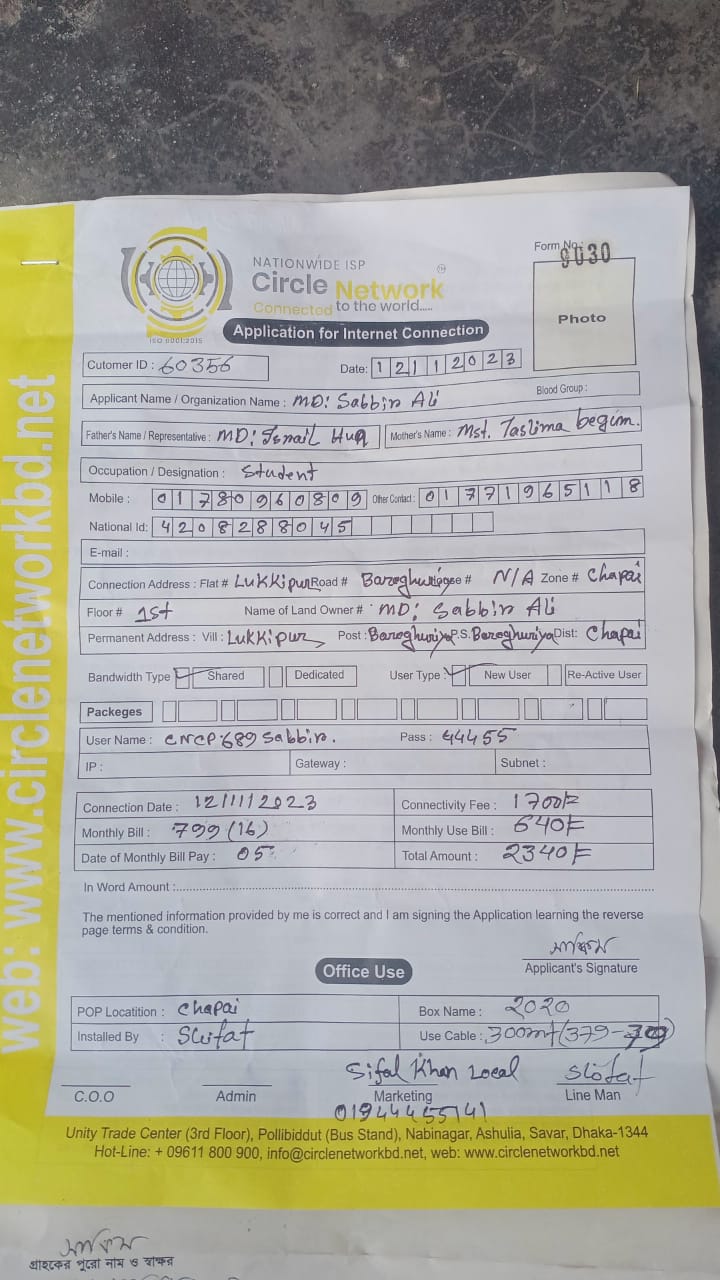 web: www.circlenetworkbd.net
NATIONWIDE ISP
Circle Network
Connected to the world.....
ISO 9001:2015
Form No: 9030
Photo
Application for Internet Connection
Cutomer ID : 60356
Date: 12112023
Applicant Name / Organization Name : MD: Sabbir Ali
Blood Group :
Father's Name / Representative : MD: Ismail Huq Mother's Name : Mst. Taslima begim.
Occupation / Designation : Student
Mobile : 01780960809 Other Contact : 01771965118
National Id: 4208288045
E-mail :
Connection Address : Flat # Lukkipur Road # Bareghuriya # N/A Zone # Chapai
Floor # 1st Name of Land Owner # MD: Sabbir Ali
Permanent Address : Vill : Lukkipur Post : Bareghuriya P.S. Bareghuriya Dist: Chapai
Bandwidth Type Shared Dedicated User Type : New User Re-Active User
Packeges
User Name : CNCP689 Sabbir. Pass : 44455
IP : Gateway : Subnet :
Connection Date : 12/11/2023 Connectivity Fee : 1700/-
Monthly Bill : 799 (16) Monthly Use Bill : 640/-
Date of Monthly Bill Pay : 05 Total Amount : 2340/-
In Word Amount :
The mentioned information provided by me is correct and I am signing the Application learning the reverse
page terms & condition.
সাব্বির
Applicant's Signature
Office Use
POP Locatition : Chapai Box Name : 2020
Installed By : Use Cable : 300mt (379-
Sifat Khan Local
C.O.O Admin Marketing Line Man
01944455141
Unity Trade Center (3rd Floor), Pollibiddut (Bus Stand), Nabinagar, Ashulia, Savar, Dhaka-1344
Hot-Line: + 09611 800 900, info@circlenetworkbd.net, web: www.circlenetworkbd.net
সাব্বির
গ্রাহকের পুরো নাম ও স্বাক্ষর